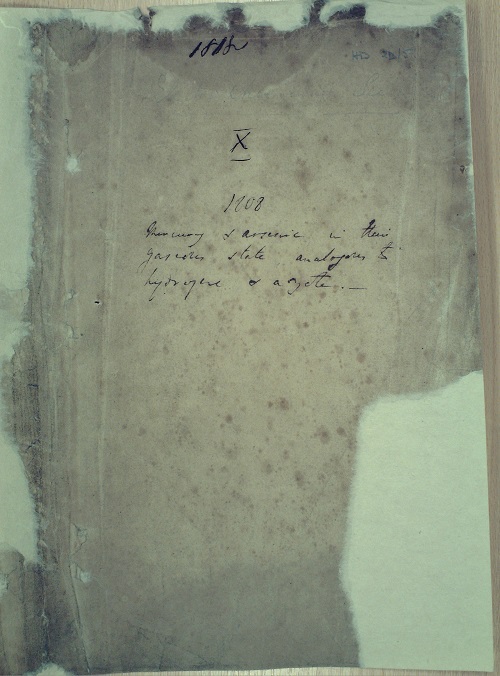 X
1808
Mercury & arsenic in their
gaseous state analogous to
hydrogene & azote. —